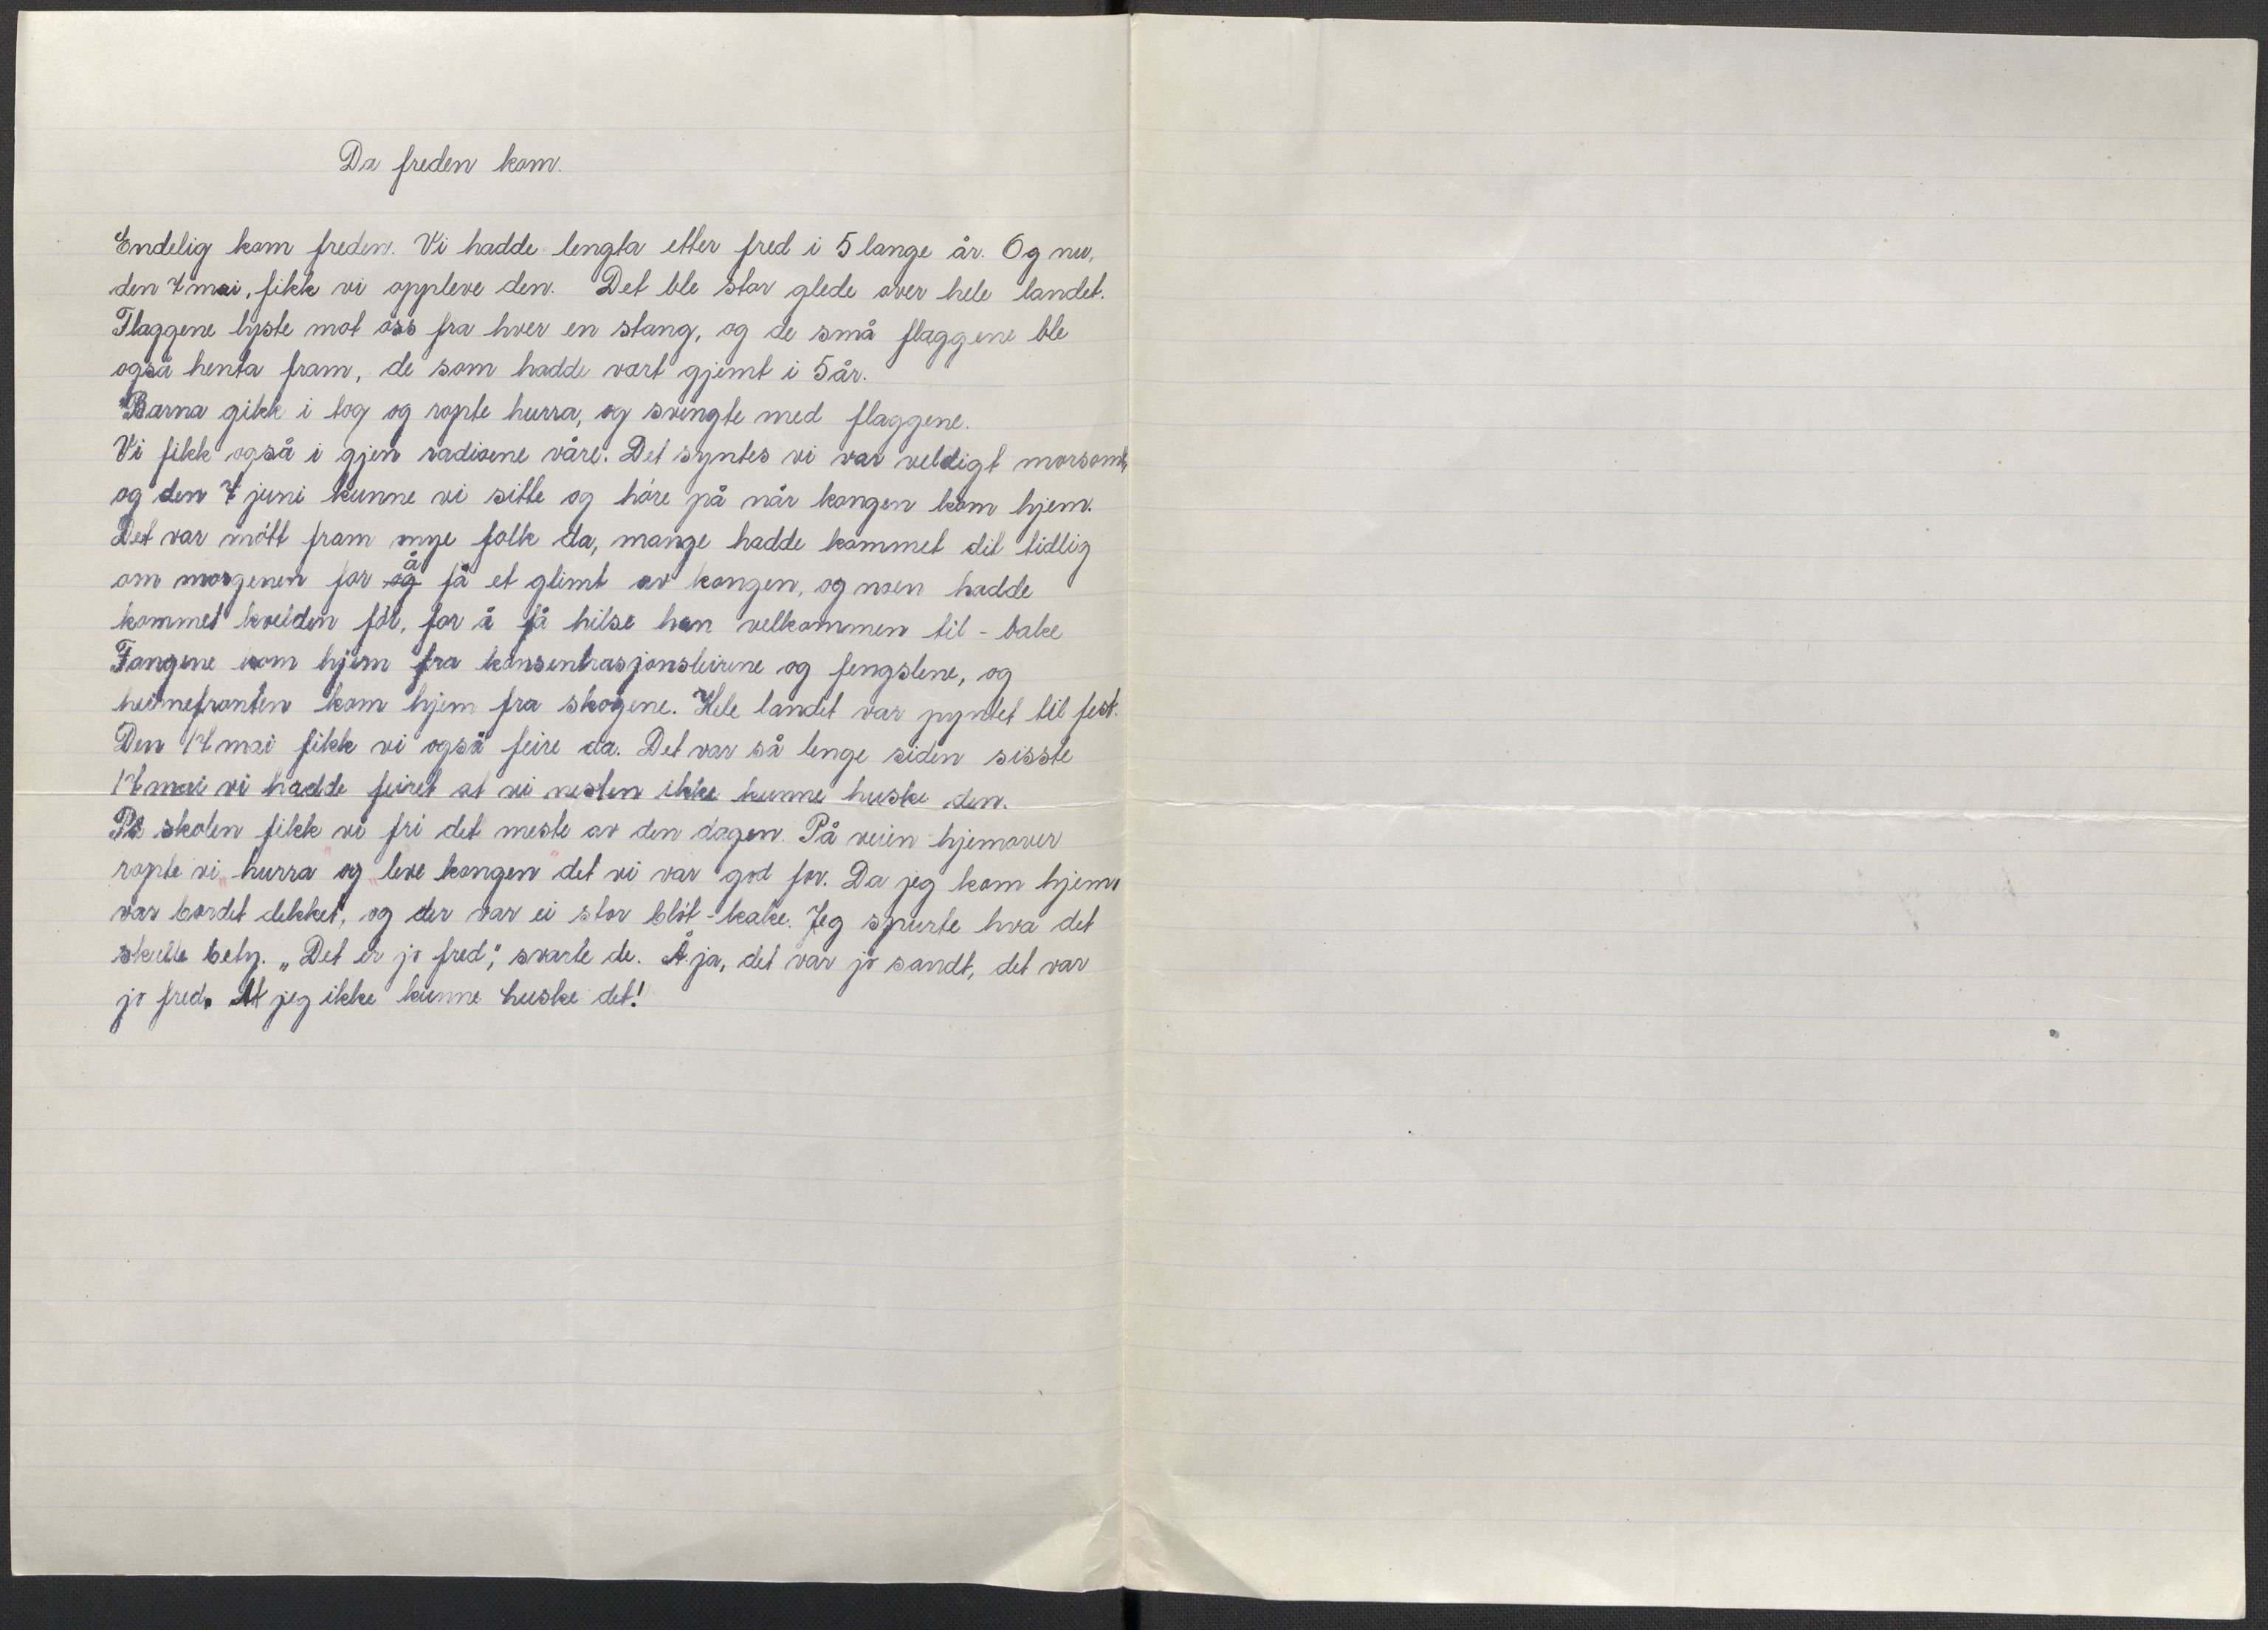 Da freden kom.
Endelig kom freden. Vi hadde lengta etter fred i 5 lange år. Og nu,
den 7 mai, fikk vi oppleve den. Det ble stor glede over hele landet.
Flaggene lyste mot oss fra hver en stang, og de små flaggene ble
også henta fram, de som hadde vært gjemt i 5 år.
Barna gikk i tog og ropte hurra, og svingte med flaggene.
Vi fikk også i gjen radioene våre. Det syntes vi var veldigt morsomt,
og den 7 juni kunne vi sitte og høre på når kongen kom hjem.
Det var møtt fram mye folk da, mange hadde kommet dit tidlig
om morgenen for å få et glimt av kongen, og noen hadde
kommet kvelden før, for å få hilse han velkommen til - bake
Fangene kom hjem fra konsentrasjonsleirene og fengslene, og
heimefronten kom hjem fra skogene. Hele landet var pyntet til fest.
Den 17 mai fikk vi også feire da. Det var så lenge siden sisste
17 mai vi hadde feiret at vi nesten ikke kunne huske den.
På skolen fikk vi fri det meste av den dagen. På veien hjemover
ropte vi „hurra" og „leve kongen" det vi var god for. Da jeg kom hjem,
var bordet dekket, og der var ei stor bløt-kake. Jeg spurte hva det
skulle bety. „Det er jo fred", svarte de. Å ja, det var jo sandt, det var
jo fred. At jeg ikke kunne huske det!